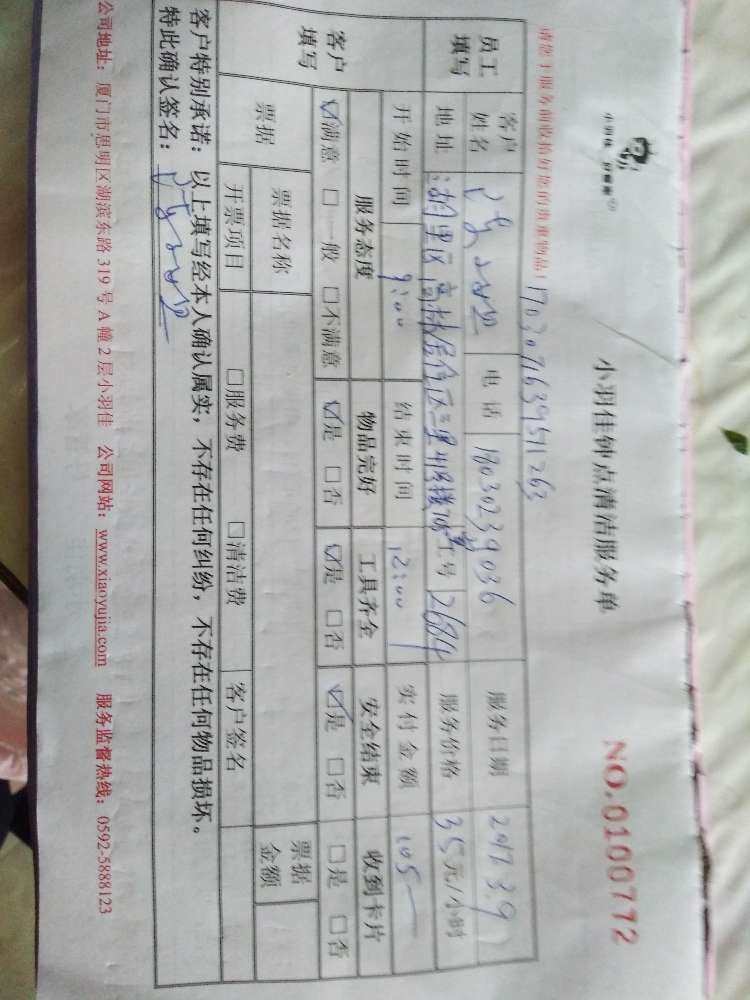 小羽佳 好管家
小羽佳钟点清洁服务单
NO.0100772
请您于服务前收拾好您的贵重物品!
170307163957 1263
员工填写 客户姓名 电话 18030239036 服务日期 2017 3.9
地址 湖里区高林居住区三里 工号 2684 服务价格 35元/小时
开始时间 9:00 结束时间 12:00 实付金额 105—
客户填写 服务态度 物品完好 工具齐全 安全结束 收到卡片
☑满意 □一般 □不满意 ☑是 □否 ☑是 □否 ☑是 □否 □是 □否
票据 票据名称 票据金额
开票项目 □服务费 □清洁费 客户签名
客户特别承诺:以上填写经本人确认属实,不存在任何纠纷,不存在任何物品损坏。
特此确认签名:
公司地址:厦门市思明区湖滨东路 319 号 A 幢 2 层小羽佳 公司网站:www.xiaoyujia.com 服务监督热线:0592-5888123